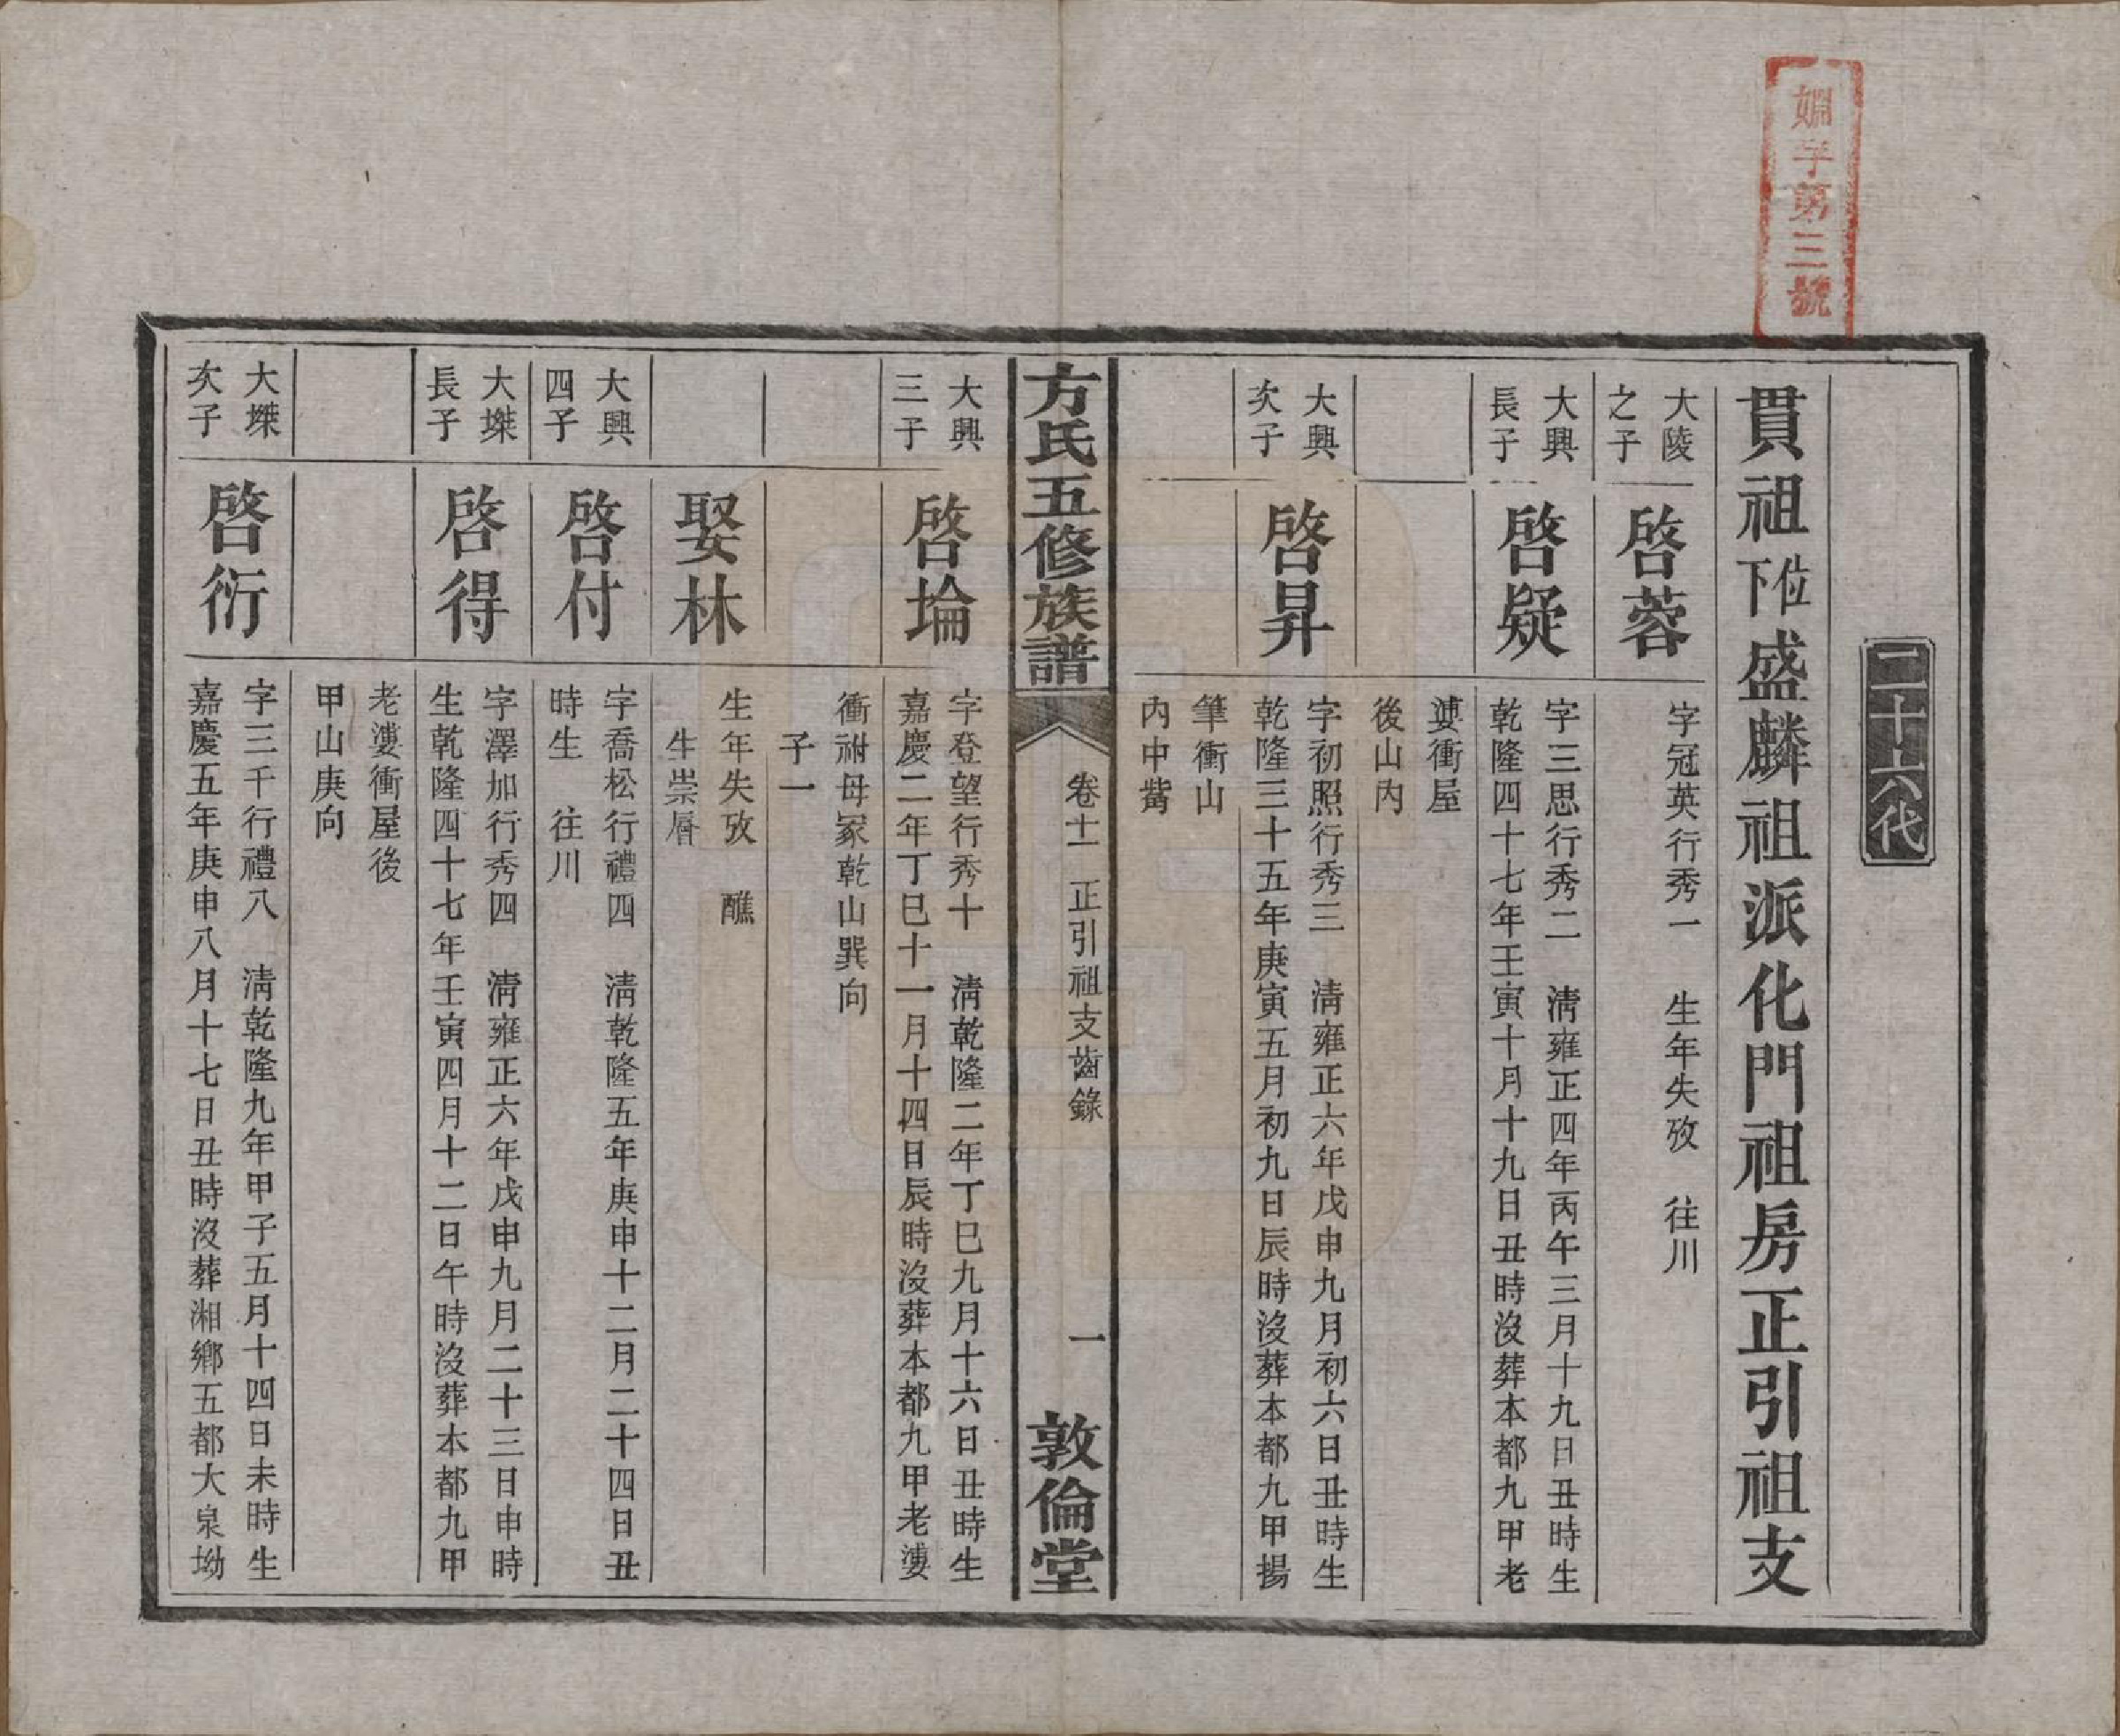 婣字第三號
二十六代
貫祖位下盛麟祖派化門祖房正引祖支
大陵
之子
啓蓉
字冠英行秀一 生年失攷 往川
大興
長子
啓疑
字三思行秀二 淸雍正四年丙午三月十九日丑時生
乾隆四十七年壬寅十月十九日丑時沒葬本都九甲老
漊衝屋
後山內
大興
次子
啓昇
字初照行秀三 淸雍正六年戊申九月初六日丑時生
乾隆三十五年庚寅五月初九日辰時沒葬本都九甲揚
筆衝山
內中觜
方氏五修族譜
卷十一 正引祖支齒錄
一
敦倫堂
大興
三子
啓埨
字登望行秀十 淸乾隆二年丁巳九月十六日丑時生
嘉慶二年丁巳十一月十四日辰時沒葬本都九甲老漊
衝祔母冢乾山巽向
子一
娶林
生年失攷 醮
生崇層
大興
四子
啓付
字喬松行禮四 淸乾隆五年庚申十二月二十四日丑
時生 往川
大榤
長子
啓得
字澤加行秀四 淸雍正六年戊申九月二十三日申時
生乾隆四十七年壬寅四月十二日午時沒葬本都九甲
老漊衝屋後
甲山庚向
大榤
次子
啓衍
字三千行禮八 淸乾隆九年甲子五月十四日未時生
嘉慶五年庚申八月十七日丑時沒葬湘鄉五都大泉坳